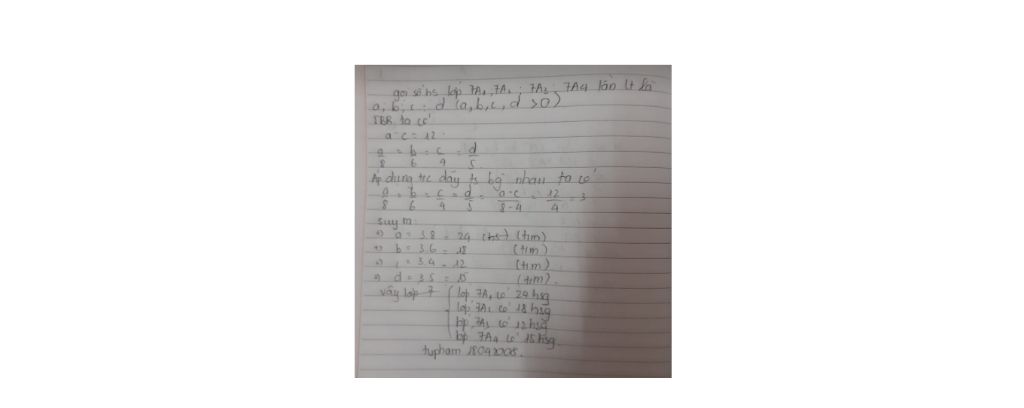 gọi số hs lớp 7A1, 7A2; 7A3; 7A4 lần lt là
a; b; c; d (a, b, c, d >0)
TBR ta có
a-c = 12
a/8 = b/6 = c/4 = d/5
Áp dụng t/c dãy ts bg nhau ta có
a/8 = b/6 = c/4 = d/5 = a-c/8-4 = 12/4 = 3
suy ra:
=> a = 3.8 = 24 (hs) (t/m)
=> b = 3.6 = 18 (t/m)
=> c = 3.4 = 12 (t/m)
=> d = 3.5 = 15 (t/m).
vậy lớp 7 { lớp 7A1 có 24 hsg
lớp 7A2 có 18 hsg
lớp 7A3 có 12 hsg
lớp 7A4 có 15 hsg.
tupham 18042008.